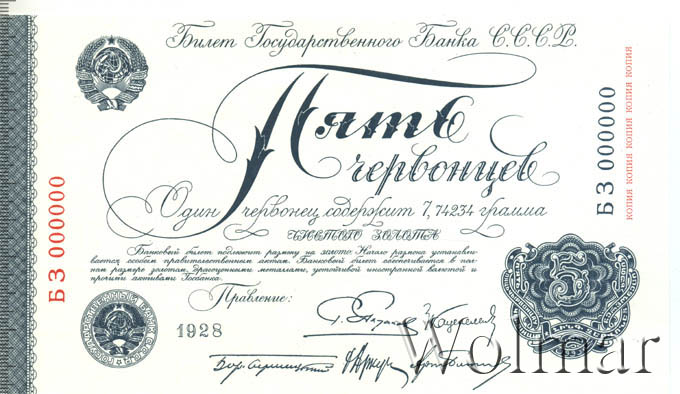 Билет Государственного Банка С.С.С.Р.
Пять
червонцев
Один червонец содержит 7,74234 грамма
чистого золота
Банковый билет подлежит размену на золото. Начало размена устанавли-
вается особым правительственным актом. Банковый билет обеспечивается в пол-
ном размере золотом, драгоценными металлами, устойчивой иностранной валютой и
прочими активами Госбанка.
Правление:
1928
5
БЗ 000000
БЗ 000000
КОПИЯ КОПИЯ КОПИЯ КОПИЯ КОПИЯ
Wolmar